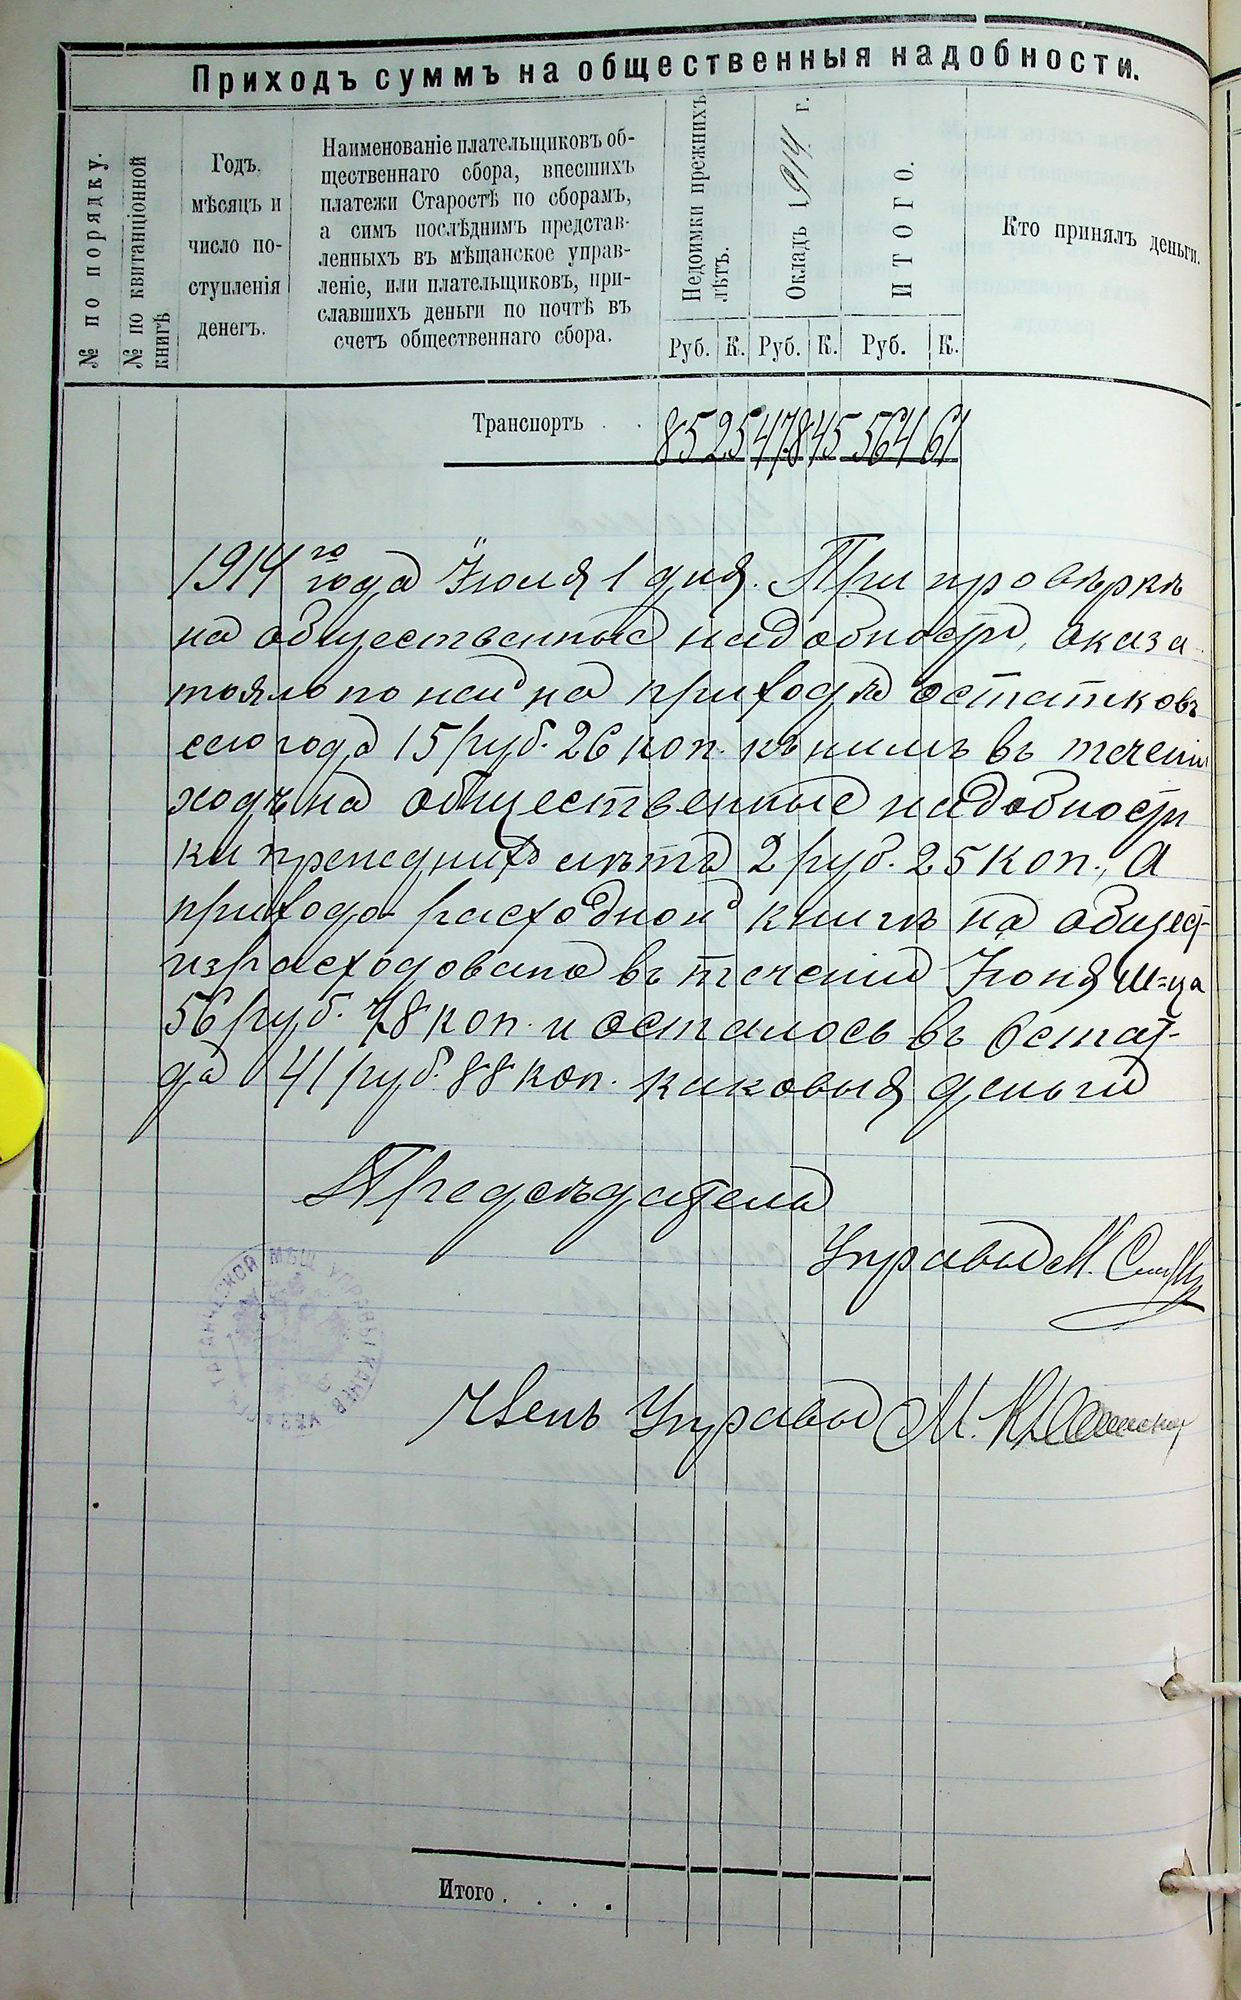 Приходъ суммъ на общественныя надобности.
№ по порядку.
№ по квитанціонной книгѣ
Годъ, мѣсяцъ и число поступленія денегъ.
Наименованіе плательщиковъ об-
щественнаго сбора, внесшихъ
платежи Старостѣ по сборамъ,
а симъ послѣднимъ представ-
ленныхъ въ мѣщанское управ-
леніе, или плательщиковъ, при-
славшихъ деньги по почтѣ въ
счетъ общественнаго сбора.
Недоимки прежнихъ лѣтъ.
Окладъ 1914 г.
ИТОГО.
Кто принялъ деньги.
Руб. К. Руб. К. Руб. К.
Транспортъ . . 85 25 478 45 564 61
1914 го года Іюля 1 дня. При провѣркѣ
на общественные надобности, оказа
тояло по ней на приходѣ остатковъ
сего года 15 руб. 26 коп. къ нимъ въ теченіи
ходъ на общественные надобности
ки прежднихъ лѣтъ 2 руб. 25 коп., А
приходо-расходной книгѣ на общест-
израсходовано въ теченіи Іюня м-ца
56 руб. 78 коп. и осталось въ остат-
да 41 руб. 88 коп. каковыя деньги
Предсѣдатель
Управы М.
ТАГАНЧЕСКОЙ МѢЩ. УПРАВЫ КАНЕВ.
Членъ Управы М.
Итого . . . .